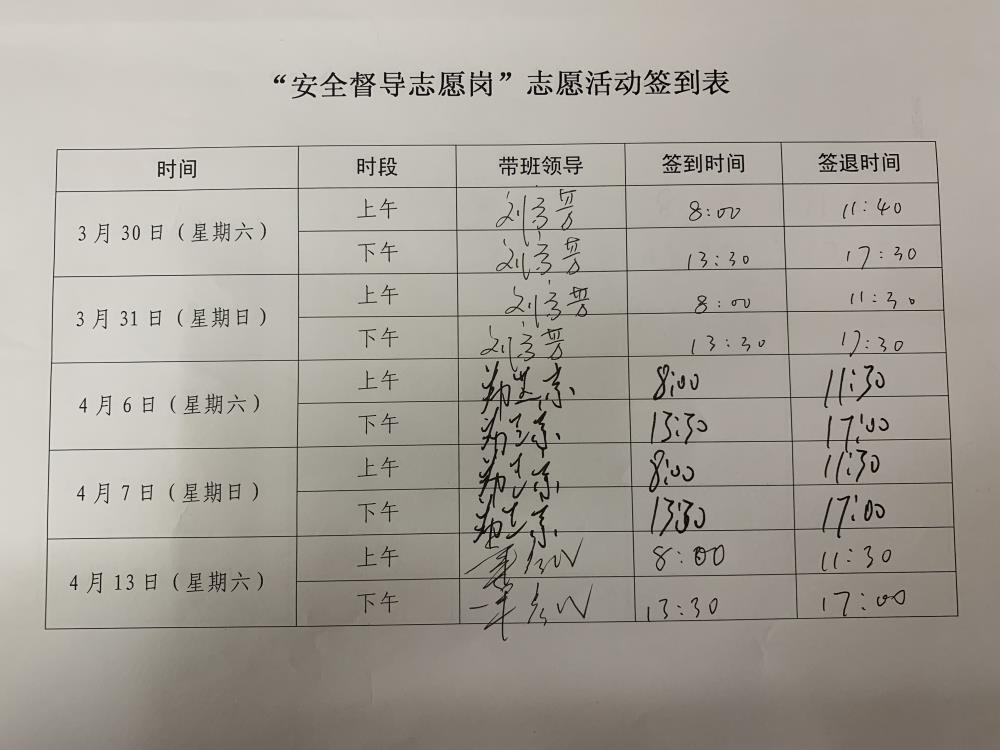 “安全督导志愿岗”志愿活动签到表
时间 时段 带班领导 签到时间 签退时间
3月30日（星期六） 上午 8:00 11:40
下午 13:30 17:30
3月31日（星期日） 上午 8:00 11:30
下午 13:30 17:30
4月6日（星期六） 上午 8:00 11:30
下午 13:30 17:00
4月7日（星期日） 上午 8:00 11:30
下午 13:30 17:00
4月13日（星期六） 上午 8:00 11:30
下午 13:30 17:00